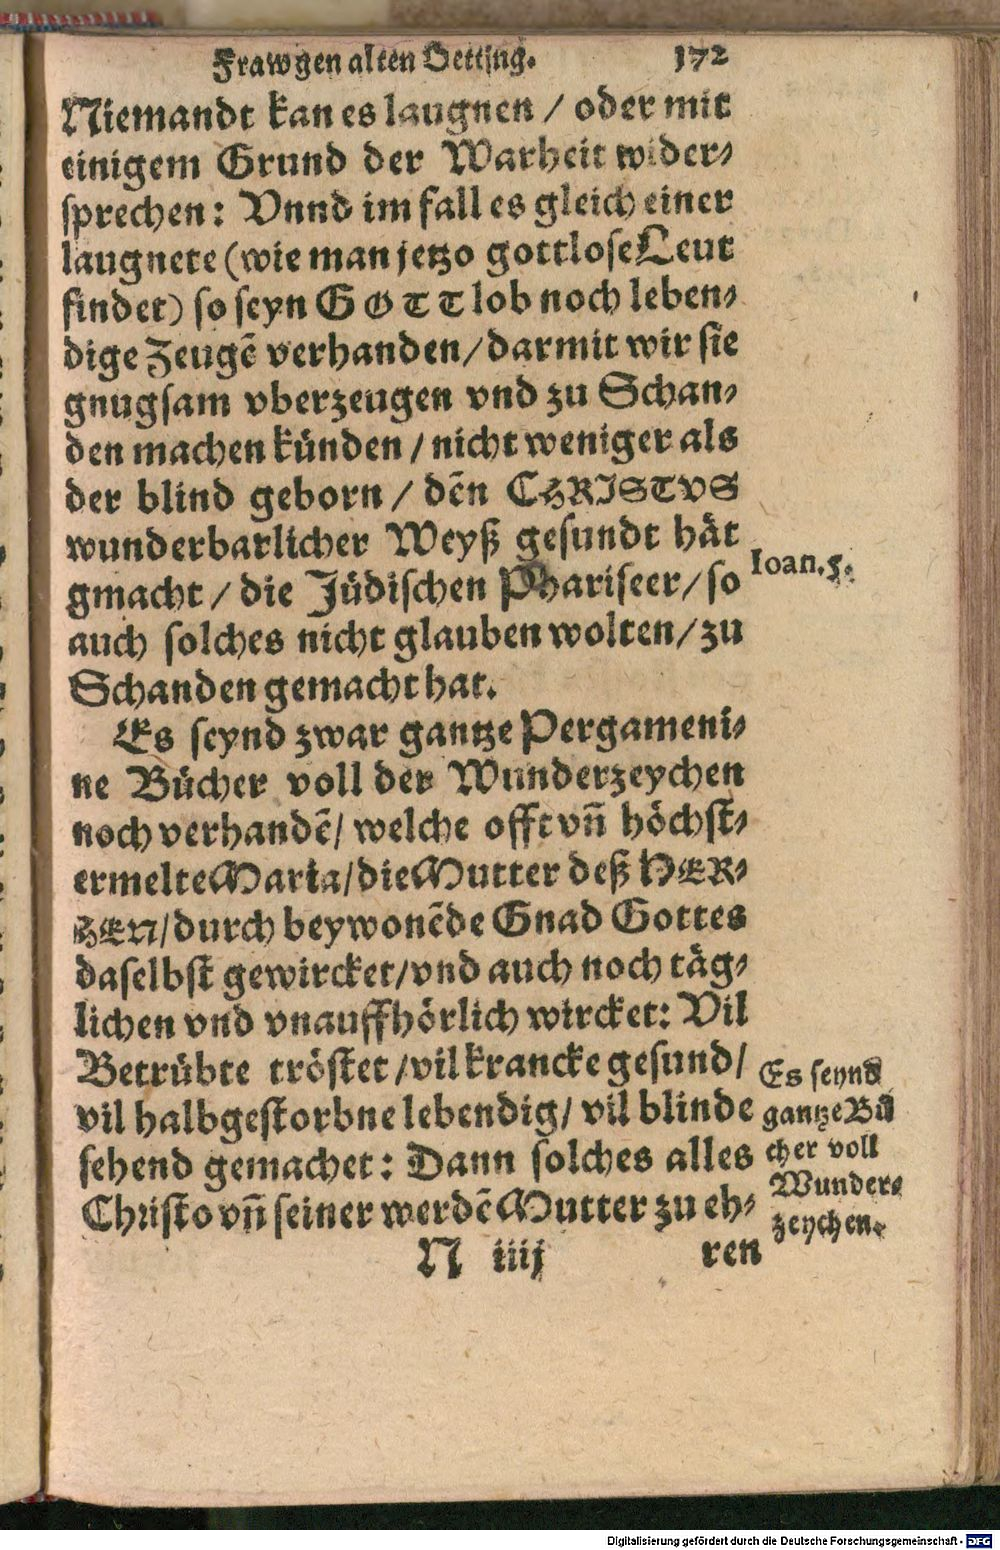 Frawgen alten Oetting. 172
Niemandt kan es laugnen / oder mit
einigem Grund der Warheit wider⸗
sprechen: Vnnd im fall es gleich einer
laugnete (wie man jetzo gottlose Leut
findet) so seyn GOTT lob noch leben⸗
dige Zeugẽ verhanden / darmit wir sie
gnugsam vberzeugen vnd zu Schan⸗
den machen künden / nicht weniger als
der blind geborn / dẽn CHRISTVS
wunderbarlicher Weyß gesundt hät
gmacht / die Jüdischen Phariseer / so
auch solches nicht glauben wolten / zu
Schanden gemacht hat.
Ioan. 5.
Es seynd zwar gantze Pergameni⸗
ne Bücher voll der Wunderzeychen
noch verhandẽ / welche offt vñ höchst⸗
ermelte Maria / die Mutter deß HER⸗
REN / durch beywonẽde Gnad Gottes
daselbst gewircket / vnd auch noch täg⸗
lichen vnd vnauffhörlich wircket: Vil
Betrübte tröstet / vil krancke gesund /
vil halbgestorbne lebendig / vil blinde
sehend gemachet: Dann solches alles
Christo vñ seiner werdẽ Mutter zu eh⸗
Es seynd
gantze Bü
cher voll
Wunder⸗
zeychen.
N iiij ren
Digitalisierung gefördert durch die Deutsche Forschungsgemeinschaft - DFG